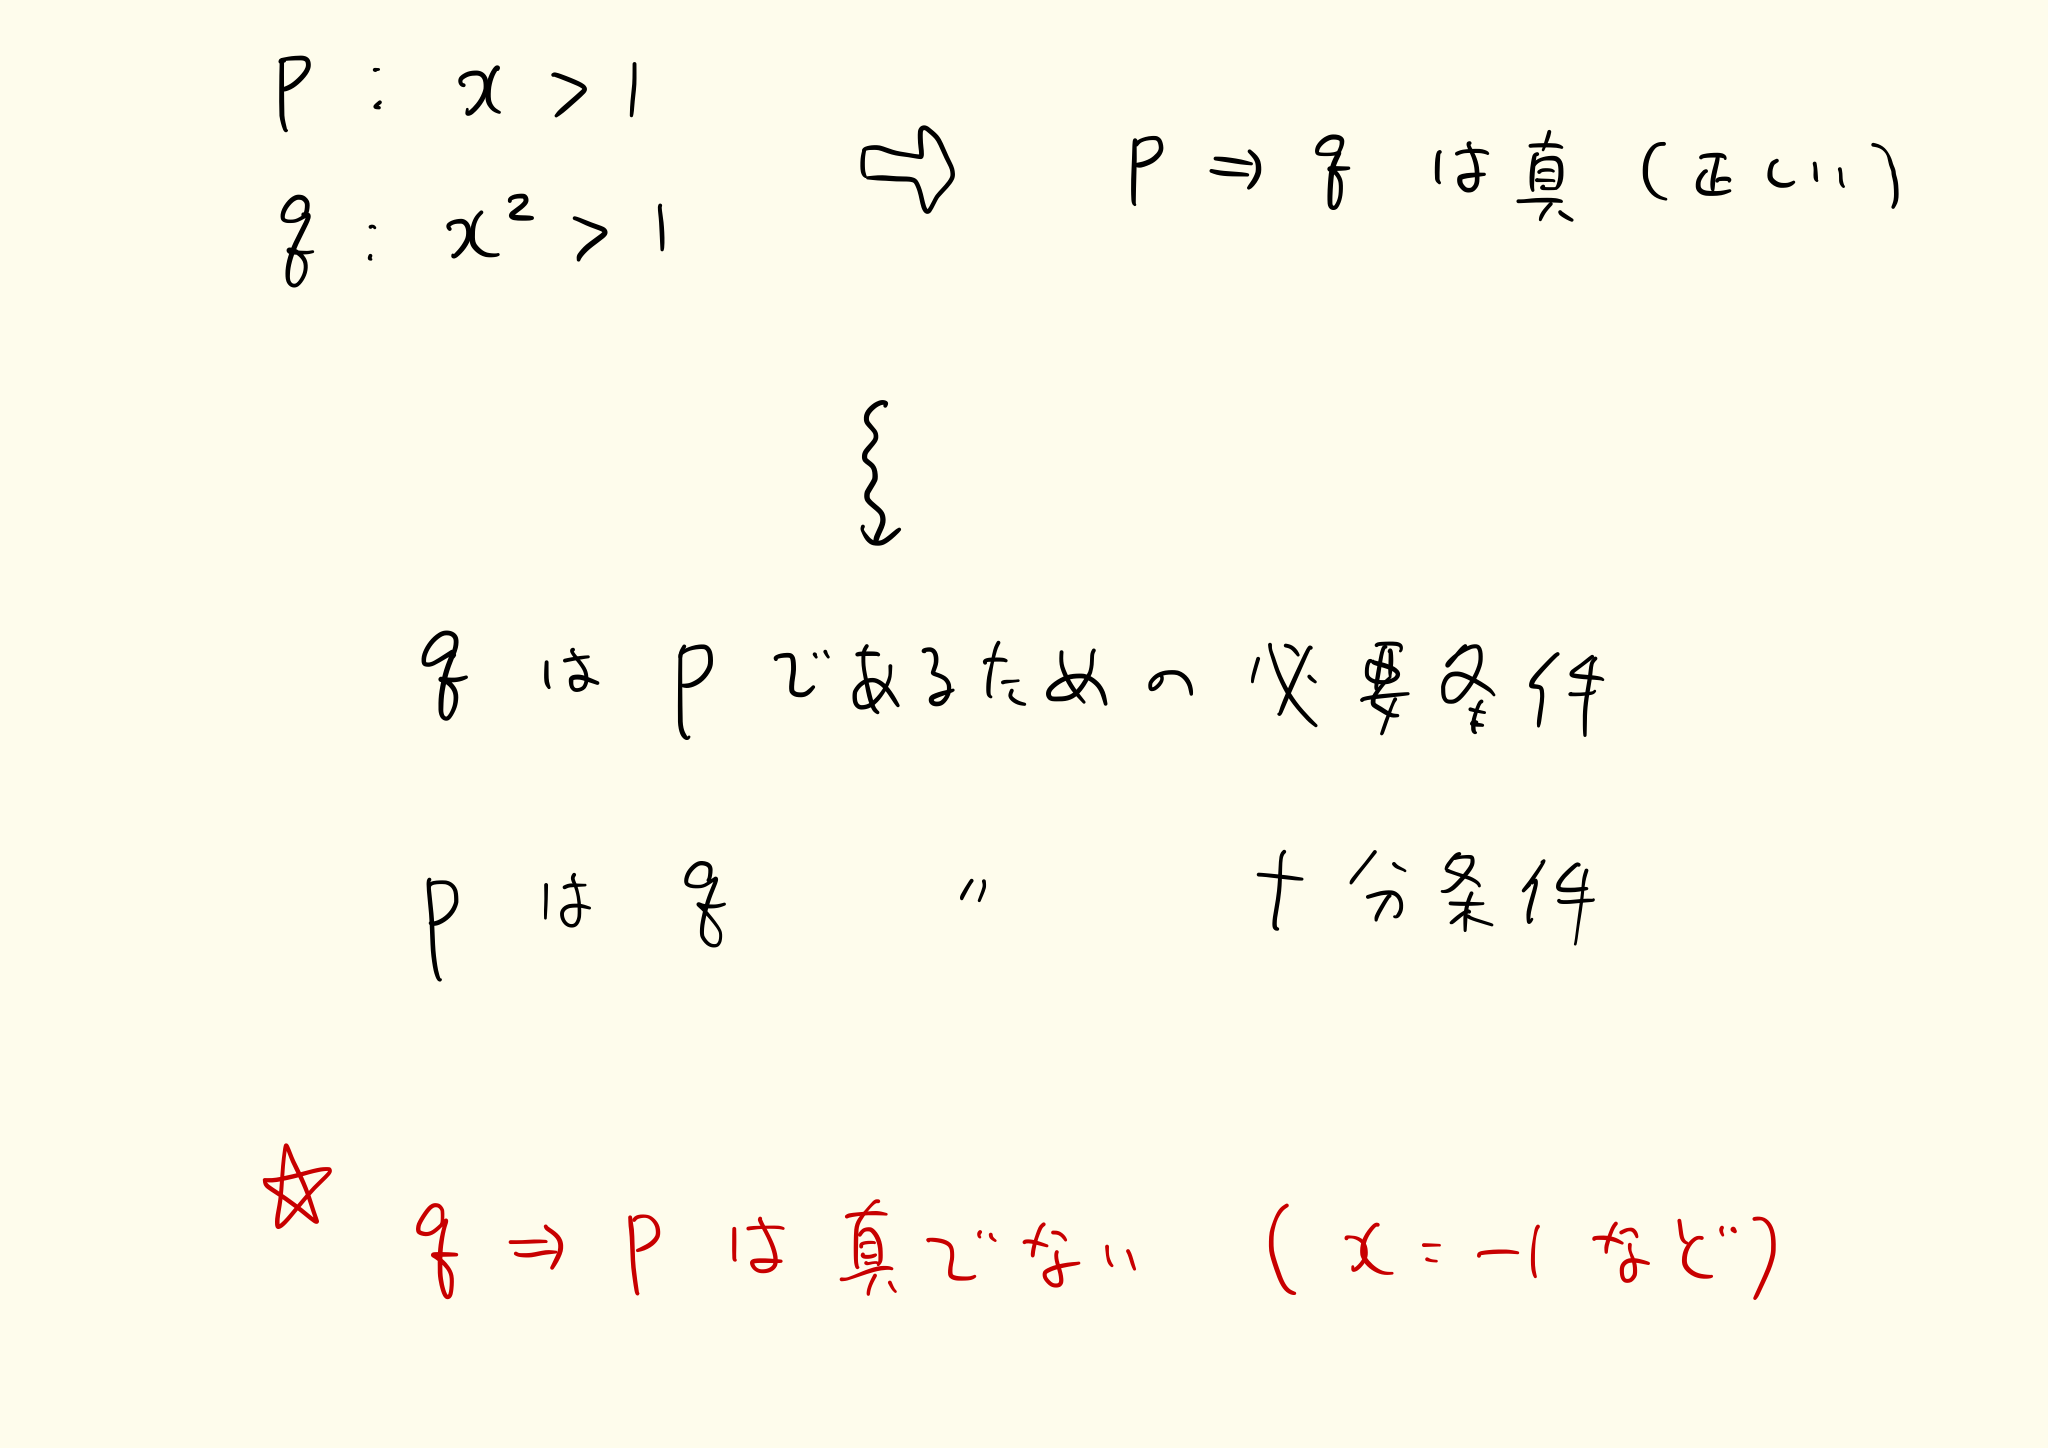 p : x > 1
q : x² > 1
⇨ p ⇒ q は真 (正しい)
q は p であるための 必要条件
p は q 〃 十分条件
☆ q ⇒ p は真でない ( x = -1 など)